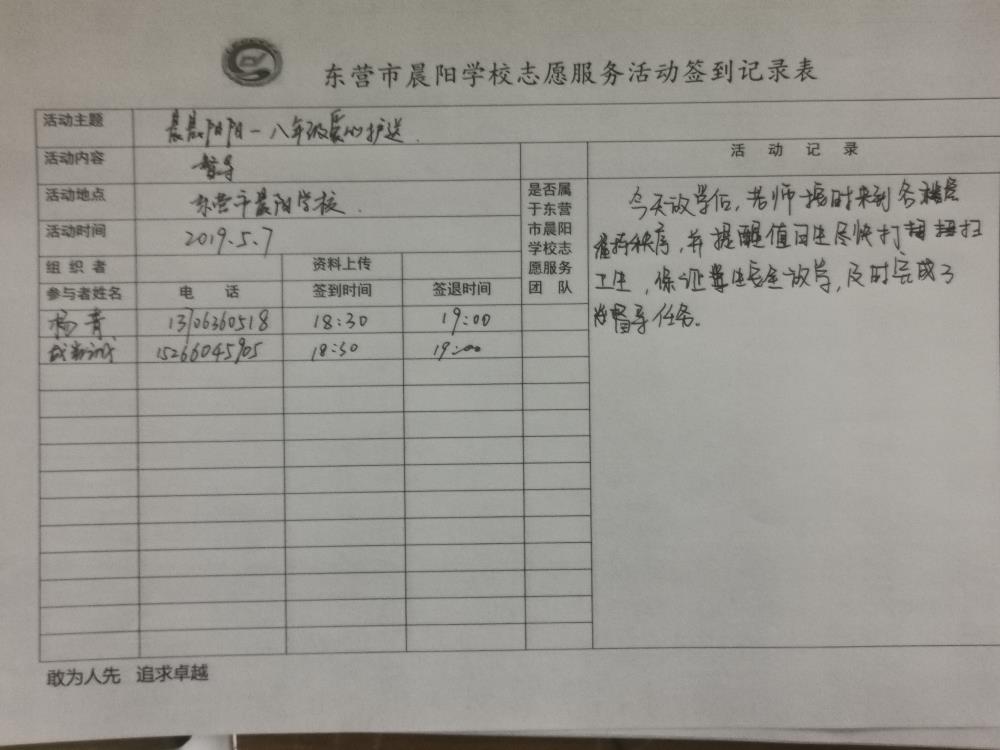 东营市晨阳学校志愿服务活动签到记录表
活动主题 晨晨阳阳一八年级爱心护送.
活动内容 督导
活动地点 东营市晨阳学校.
活动时间 2019.5.7
组织者 资料上传
参与者姓名 电话 签到时间 签退时间
杨青 13706360518 18:30 19:00
15266045905 18:30 19:00
是否属
于东营
市晨阳
学校志
愿服务
团队
活动记录
今天放学后,老师按时来到各楼层
维持秩序,并提醒值日生尽快打扫
卫生,保证学生安全放学,及时完成了
督导任务。
敢为人先 追求卓越